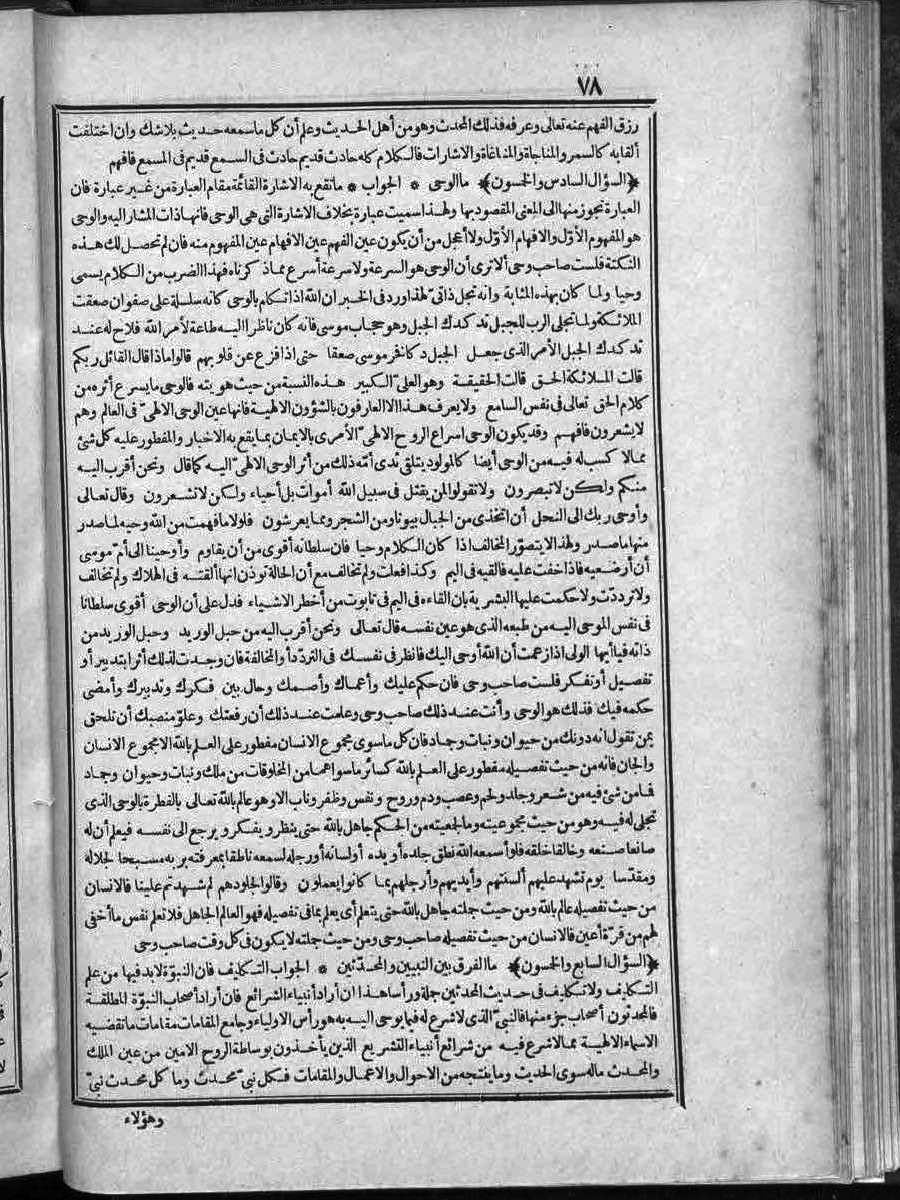 ٧٨
رزق الفهم عنه تعالى وعرفه فذلك المحدث وهو من أهل الحديث وعلم أن كل ما سمعه حديث بلا شك وان اختلفت
ألقابه كالسمر والمناجاة والمناغاة والاشارات فالكلام كله حادث قديم حادث فى السمع قديم فى المسمع فافهم
﴿السؤال السادس والخمسون﴾ ما الوحى * الجواب * ما تقع به الاشارة القائمة مقام العبارة من غير عبارة فان
العبارة تجوز منها الى المعنى المقصود بها ولهذا سميت عبارة بخلاف الاشارة التى هى الوحى فانها ذات المشار اليه والوحى
هو المفهوم الأوّل والافهام الأوّل ولا أعجل من أن يكون عين الفهم عين الافهام عين المفهوم منه فان لم تحصل لك هذه
النكتة فلست صاحب وحى ألا ترى أن الوحى هو السرعة ولا سرعة أسرع مما ذكرناه فهذا الضرب من الكلام يسمى
وحيا ولما كان بهذه المثابة وانه تجل ذاتىّ لهذا ورد فى الخبر ان الله اذا تكلم بالوحى كانه سلسلة على صفوان صعقت
الملائكة ولما تجلى الرب للجبل تدكدك الجبل وهو حجاب موسى فانه كان ناظرا اليه طاعة لأمر الله فلاح له عند
تدكدك الجبل الأمر الذى جعل الجبل دكا نخر موسى صعقا حتى اذا فزع عن قلوبهم قالوا ماذا قال القائل ربكم
قالت الملائكة الحق قالت الحقيقة وهو العلىّ الكبير هذه النسبة من حيث هويته فالوحى ما يسرع أثره من
كلام الحق تعالى فى نفس السامع ولا يعرف هذا الا العارفون بالشؤون الالهية فانها عين الوحى الالهىّ فى العالم وهم
لا يشعرون فافهم وقد يكون الوحى اسراع الروح الالهىّ الأمرى بالايمان بما يقع به الاخبار والمفطور عليه كل شئ
مما لا كسب له فيه من الوحى أيضا كالمولود يتلقى ثدى أمّه ذلك من أثر الوحى الالهىّ اليه كما قال ونحن أقرب اليه
منكم ولكن لا تبصرون ولا تقولوا لمن يقتل فى سبيل الله أموات بل أحياء ولكن لا تشعرون وقال تعالى
وأوحى ربك الى النحل أن اتخذى من الجبال بيوتا ومن الشجر ومما يعرشون فلولا ما فهمت من الله وحيه لما صدر
منها ما صدر ولهذا لا يتصوّر المخالف اذا كان الكلام وحيا فان سلطانه أقوى من أن يقاوم وأوحينا الى أمّ موسى
أن أرضعيه فاذا خفت عليه فالقيه فى اليم وكذا فعلت ولم تخالف مع أن الحالة تؤذن انها ألقته فى الهلاك ولم تخالف
ولا تردّدت ولا حكمت عليها البشرية بان القاءه فى اليم فى تابوت من أخطر الاشياء فدل على أن الوحى أقوى سلطانا
فى نفس الموحى اليه من طبعه الذى هو عين نفسه قال تعالى ونحن أقرب اليه من حبل الوريد وحبل الوريد من
ذاته فيا أيها الولى اذا زعمت أن الله أوحى اليك فانظر فى نفسك فى التردّد أو المخالفة فان وجدت لذلك أثرا بتدبير أو
تفصيل أو تفكر فلست صاحب وحى فان حكم عليك وأعماك وأصمك وحال بين فكرك وتدبيرك وأمضى
حكمه فيك فذلك هو الوحى وأنت عند ذلك صاحب وحى وعلمت عند ذلك أن رفعتك وعلوّ منصبك أن تلحق
بمن تقول انه دونك من حيوان ونبات وجماد فان كل ما سوى مجموع الانسان مفطور على العلم بالله الا مجموع الانسان
والجان فانه من حيث تفصيله مفطور على العلم بالله كسائر ما سواهما من المخلوقات من ملك ونبات وحيوان وجماد
فما من شئ فيه من شعر وجلد ولحم وعصب ودم وروح ونفس وظفر وناب الا وهو عالم بالله تعالى بالفطرة بالوحى الذى
تجلى له فيه وهو من حيث مجموعيته وما لجمعيته من الحكم جاهل بالله حتى ينظر ويفكر ويرجع الى نفسه فيعلم أن له
صانعا صنعه وخالقا خلقه فلو أسمعه الله نطق جلده أو يده أو لسانه أو رجله لسمعه ناطقا بمعرفته بربه مسبحا لجلاله
ومقدّسا يوم تشهد عليهم ألسنتهم وأيديهم وأرجلهم بما كانوا يعملون وقالوا لجلودهم لم شهدتم علينا فالانسان
من حيث تفصيله عالم بالله ومن حيث جملته جاهل بالله حتى يتعلم أى يعلم بما فى تفصيله فهو العالم الجاهل فلا تعلم نفس ما أخفى
لهم من قرّة أعين فالانسان من حيث تفصيله صاحب وحى ومن حيث جملته لا يكون فى كل وقت صاحب وحى
﴿السؤال السابع والخمسون﴾ ما الفرق بين النبيين والمحدّثين * الجواب التكليف فان النبوّة لا بد فيها من علم
التكليف ولا تكليف فى حديث المحدثين جملة ورأسا هذا ان أراد أنبياء الشرائع فان أراد أصحاب النبوّة المطلقة
فالمحدثون أصحاب جزء منها فالنبىّ الذى لا شرع له فيما يوحى اليه به هو رأس الاولياء وجامع المقامات مقامات ما تقتضيه
الاسماء الالهية مما لا شرع فيه من شرائع أنبياء التشريع الذين يأخذون بوساطة الروح الامين من عين الملك
والمحدث ماله سوى الحديث وما ينتجه من الاحوال والاعمال والمقامات فكل نبىّ محدث وما كل محدث نبىّ
وهؤلاء